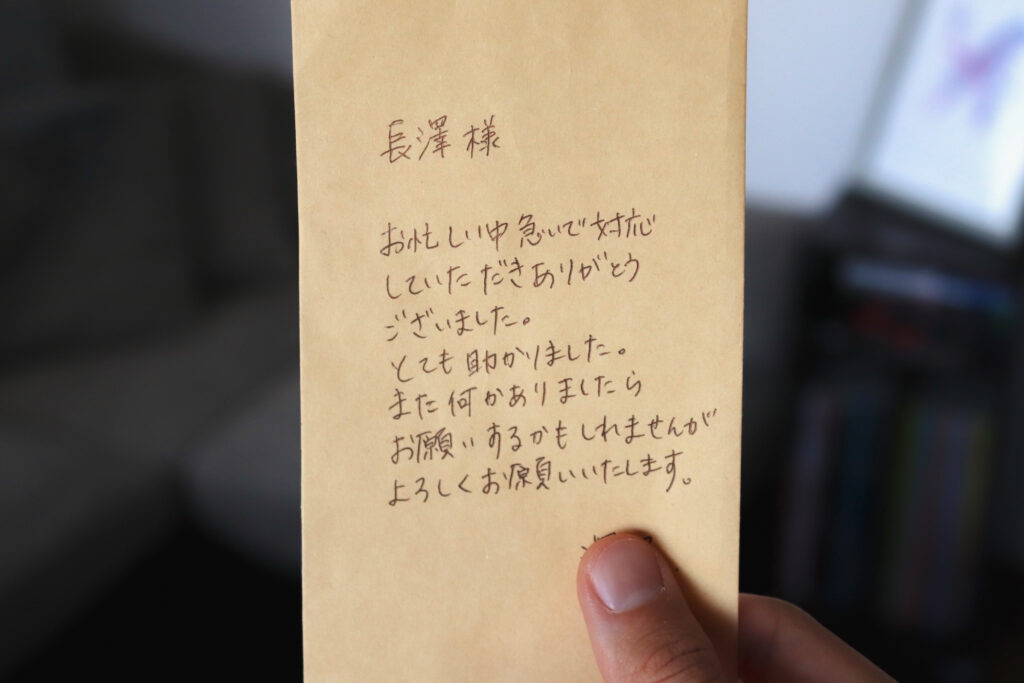 長澤様
お忙しい中急いで対応
していただきありがとう
ございました。
とても助かりました。
また何かありましたら
お願いするかもしれませんが
よろしくお願いいたします。